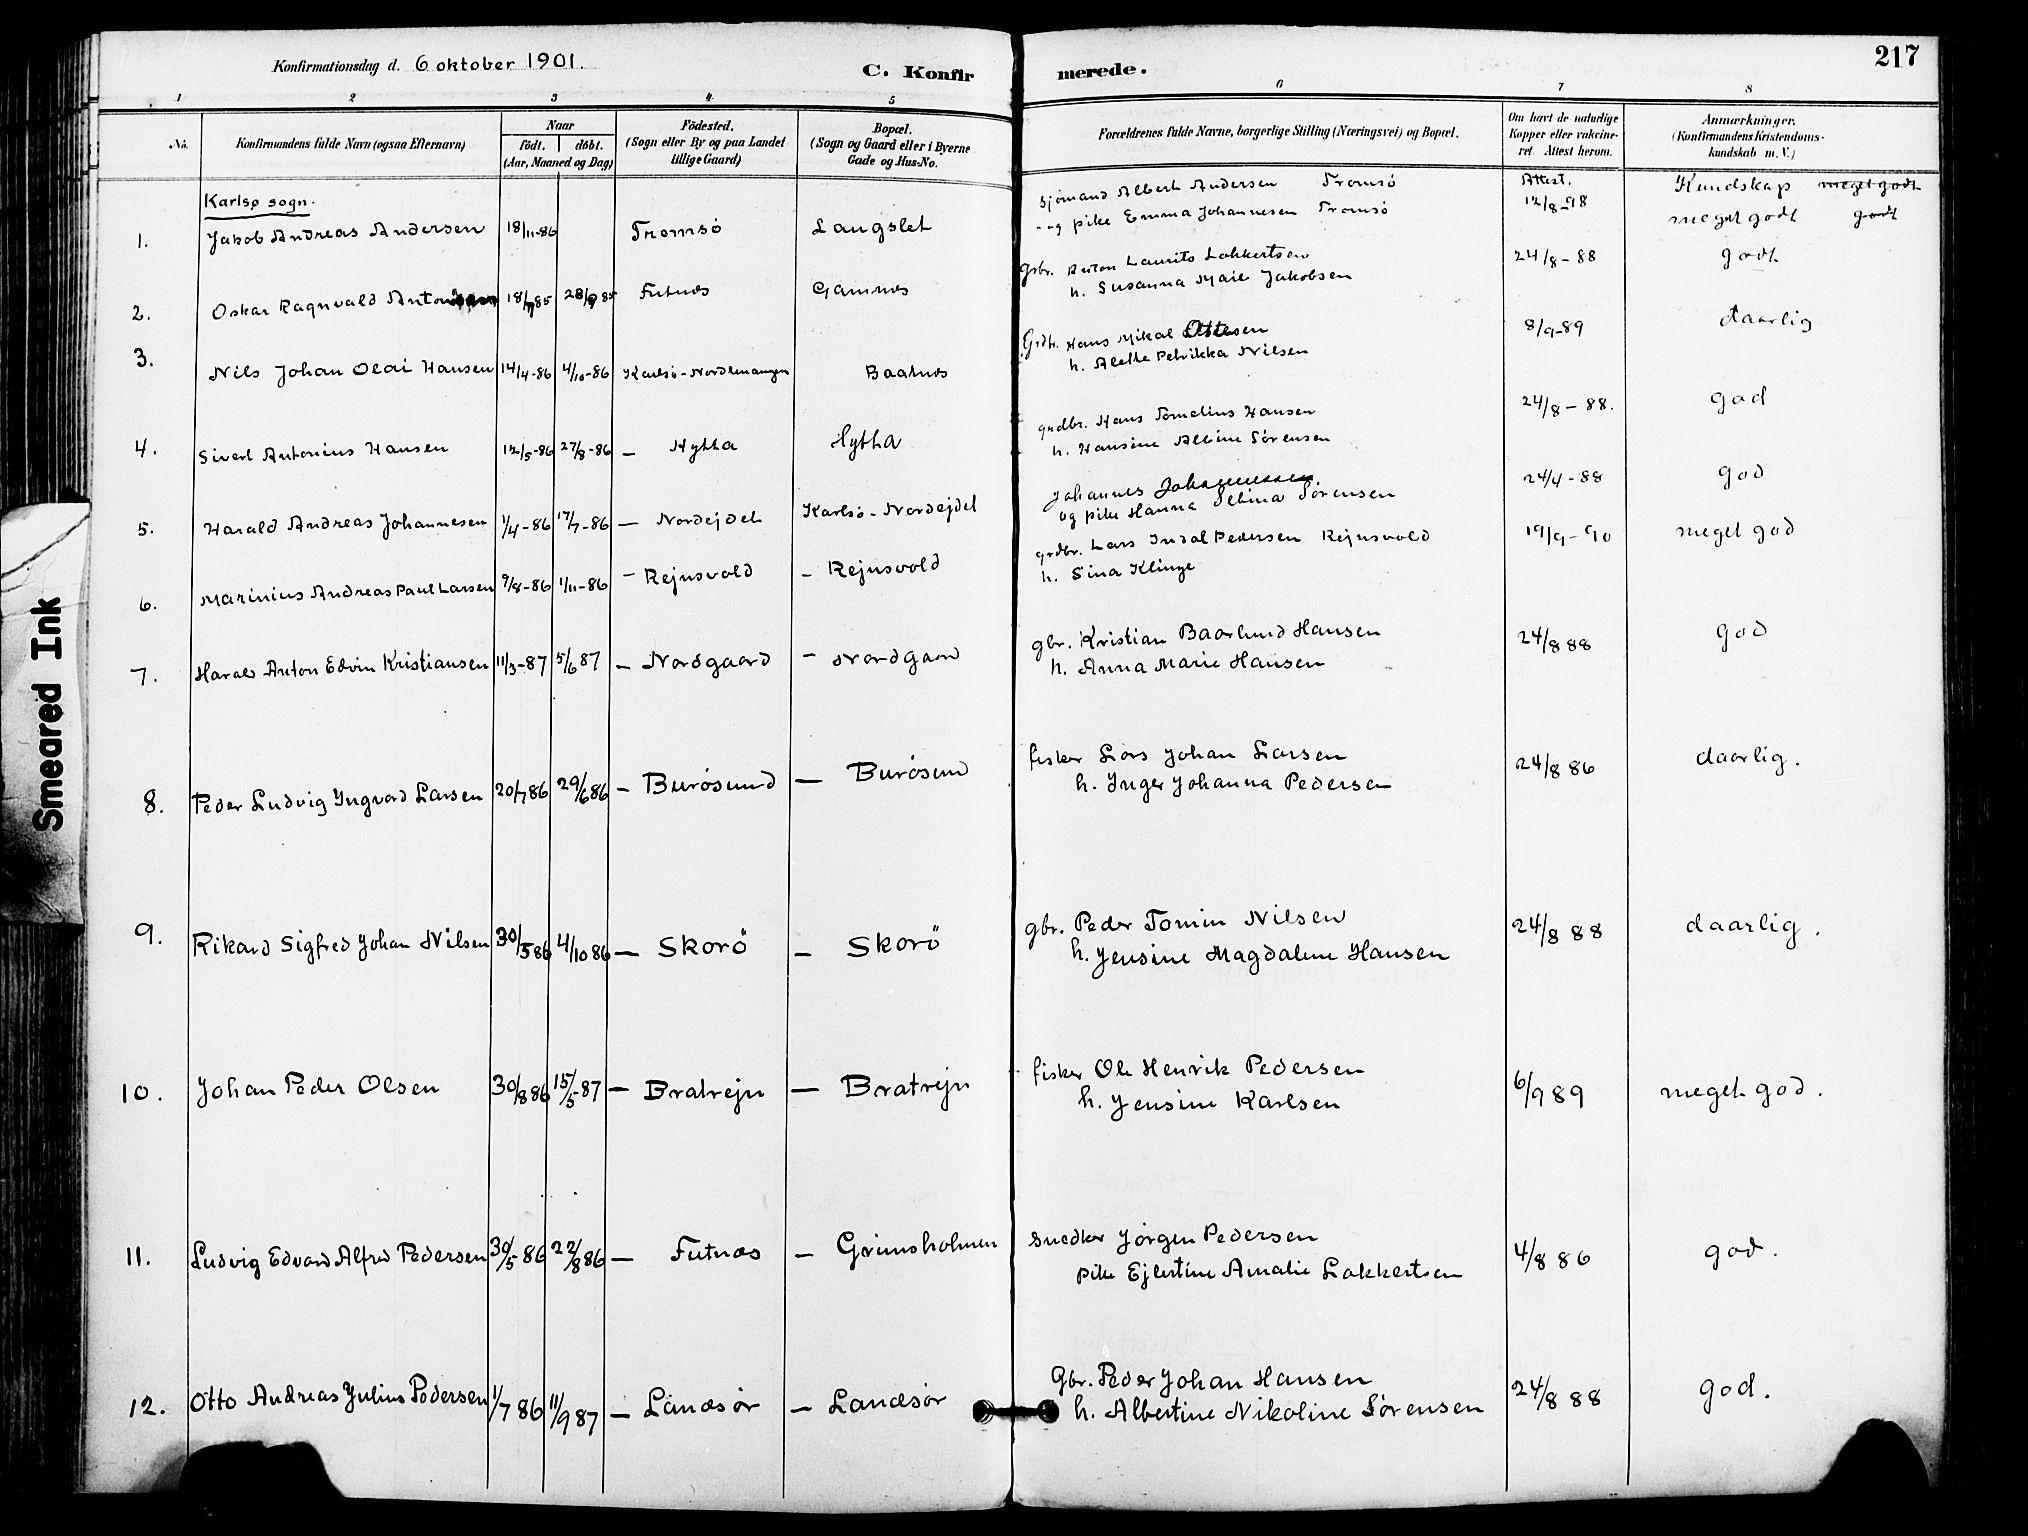 Konfirmationsdag d. 6 oktober 1901.
C. Konfirmerede.
217
1 2 3 4 5 6 7 8
No.
Konfirmandens fulde Navn (ogsaa Efternavn)
Naar
født. døbt.
(Aar, Maaned og Dag)
Fødested.
(Sogn eller By og paa Landet
tillige Gaard)
Bopæl.
(Sogn og Gaard eller i Byerne
Gade og Hus-No.
Forældrenes fulde Navne, borgerlige Stilling (Næringsvei) og Bopæl.
Om havt de naturlige
Kopper eller vakcine-
ret. Attest herom.
Anmærkninger.
(Konfirmandens Kristendoms-
kundskab m. V.)
Karlsø sogn.
1. Jakob Andreas Andersen 18/11-86 Tromsø Langslet
Sjømand Albert Andersen Tromsø
og pike Emma Johannesen Tromsø
Attest.
12/8-98
Kundskap meget godt
meget godt godt
2. Oskar Ragnvald 18/7 85 28/9 85 Futnæs Gamnæs
Gbr. Anton Laurits Lokkertsen
h. Susanna Marie Jakobsen
24/8-88 godt
3. Nils Johan Olai Hansen 14/4-86 4/10-86 Karlsö-Nordlenangen Baatnæs
Grdbr. Hans Mikal Ottesen
h. Alethe Petrikka Nilsen
8/9-89 daarlig
4. Sivert Antonius Hansen 12/5-86 27/8-86 — Hytta Hytta
grdbr. Hans Hansen
h. Hansine Albine Sørensen
24/8-88. god
5. Harald Andreas Johannesen 1/4-86 17/7-86 — Nordejdet Karlsö-Nordejdet
Johannes Johannessen
og pike Hanna Selina Sørensen
24/4-88 god
6. Marinius Andreas Paul Larsen 9/8-86 1/11-86 — Rejnsvold — Rejnsvold
grdbr. Lars Indal Pedersen Rejnsvold
h. Sina Klinge
19/9-90 meget god
7. Harald Anton Edvin Kristiansen 11/3-87 5/6 87 — Nordgaard — Nordgaard
gbr. Kristian Baarlund Hansen
h. Anna Marie Hansen
24/8 88 god
8. Peder Ludvig Ingvard Larsen 20/7 86 29/6 86 — Burösund — Burösund
fisker Lars Johan Larsen
h. Inger Johanna Pedersen
24/8 86 daarlig.
9. Rikard Sigfred Johan Nilsen 30/5 86 4/10 86 — Skorö — Skorö
gbr. Peder Tomin Nilsen
h. Jensine Magdalene Hansen
24/8 88 daarlig.
10. Johan Peder Olsen 30/8 86 15/5 87 — Bratrejn — Bratrejn
fisker Ole Henrik Pedersen
h. Jensine Karlsen
6/9 89 meget god.
11. Ludvig Edvard Alfred Pedersen 30/5 86 22/8 86 — Futnæs — Grimsholmen
Snedker Jörgen Pedersen
pike Ejlertine Amalie Lokkertsen
4/8 86 god.
12. Otto Andreas Julius Pedersen 1/7 86 11/9 87 — Lanesør — Lanesør
Gbr. Peder Johan Hansen
h. Albertine Nikoline Sørensen
24/8 88 god.
Smeared Ink